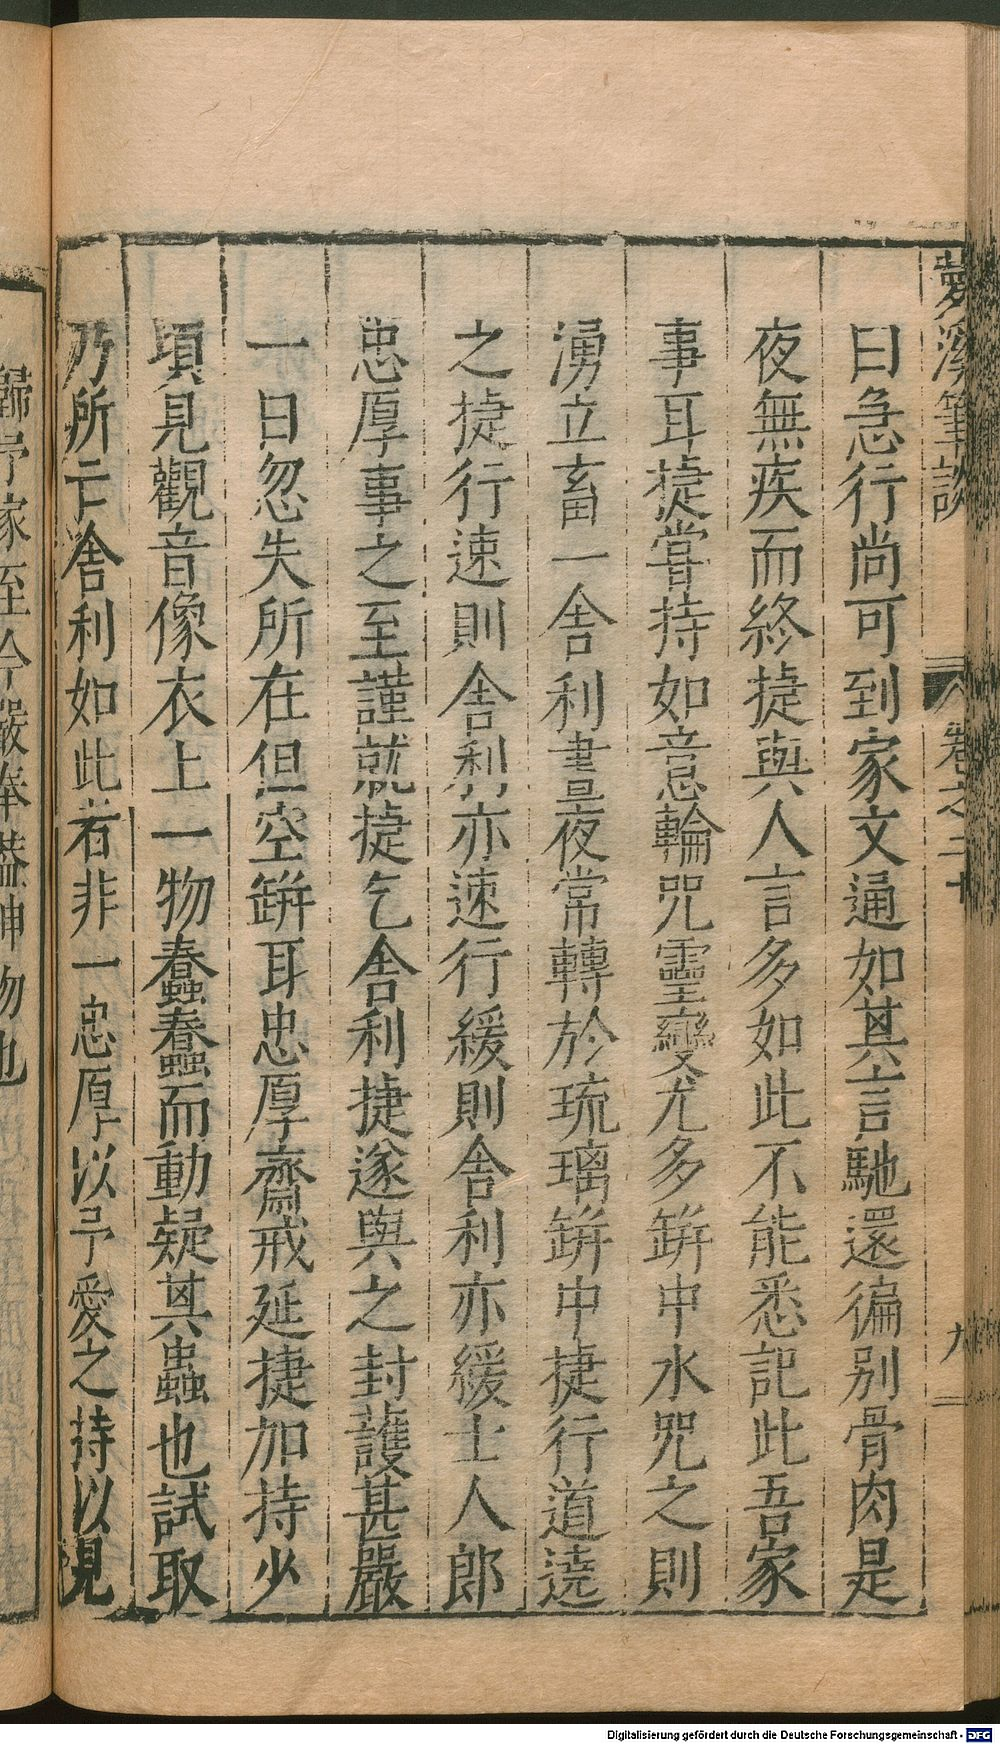 夢溪筆談 卷之二十 九
曰急行尚可到家文通如其言馳還徧別骨肉是
夜無疾而終捷與人言多如此不能悉記此吾家
事耳捷嘗持如意輪咒靈變尤多缾中水咒之則
湧立畜一舍利晝夜常轉於琉璃缾中捷行道遶
之捷行速則舍利亦速行緩則舍利亦緩士人郎
忠厚事之至謹就捷乞舍利捷遂與之封護甚嚴
一日忽失所在但空缾耳忠厚齋戒延捷加持少
頃見觀音像衣上一物蠢蠢而動疑其蟲也試取
乃所亡舍利如此者非一忠厚以予愛之持以見
歸予家至今嚴奉蓋神物也
Digitalisierung gefördert durch die Deutsche Forschungsgemeinschaft - DFG